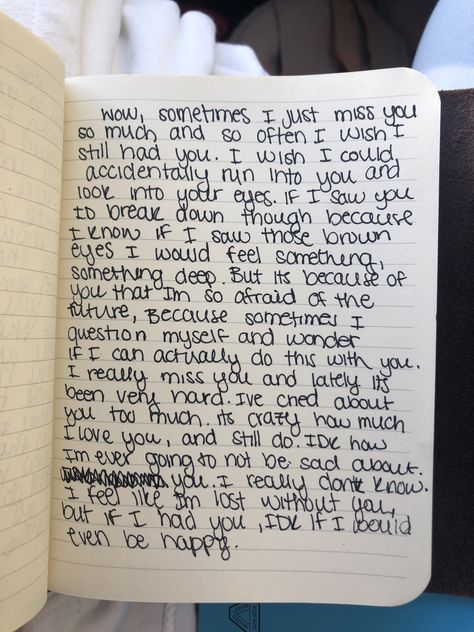 Wow, sometimes I just miss you
so much and so often I wish I
still had you. I wish I could,
accidentally run into you and
look into your eyes. If I saw you
to break down though because
I know if I saw those brown
eyes I would feel something,
something deep. But its because of
you that Im so afraid of the
future, Because sometimes I
question myself and wonder
if I can actually do this with you.
I really miss you and lately its
been very hard. Ive cried about
you too much. its crazy how much
I love you, and still do. IDK how
Im ever going to not be sad about
you. I really dont know.
I feel like Im lost without you,
but if I had you, IDK if I would
even be happy.